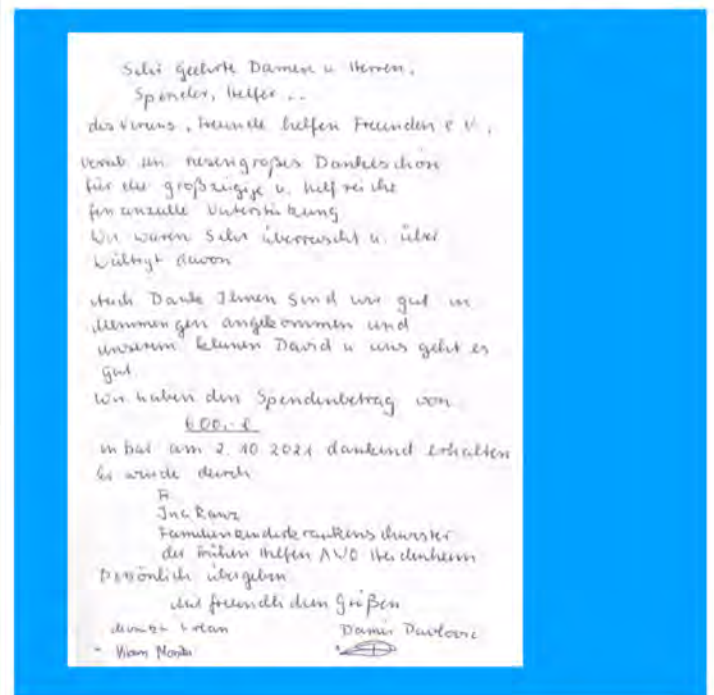 Sehr geehrte Damen u. Herren,
Spender, Helfer ..
des Vereins, Freunde helfen Freunden e.V.,
vorab ein riesengroßes Dankeschön
für die großzügige u. hilfreiche
finanzielle Unterstützung
Wir waren sehr überrascht u. über
wältigt davon
Auch Dank Ihnen sind wir gut in
Memmingen angekommen und
unserem kleinen David u uns geht es
gut.
Wir haben den Spendenbetrag von
600,- €
in bar am 2.10.2021 dankend erhalten
Es wurde durch
F.
Familienkinderkrankenschwester
der frühen Hilfen AWO Heidenheim
Persönlich übergeben
Mit freundlichen Grüßen
Damir Pavlovic